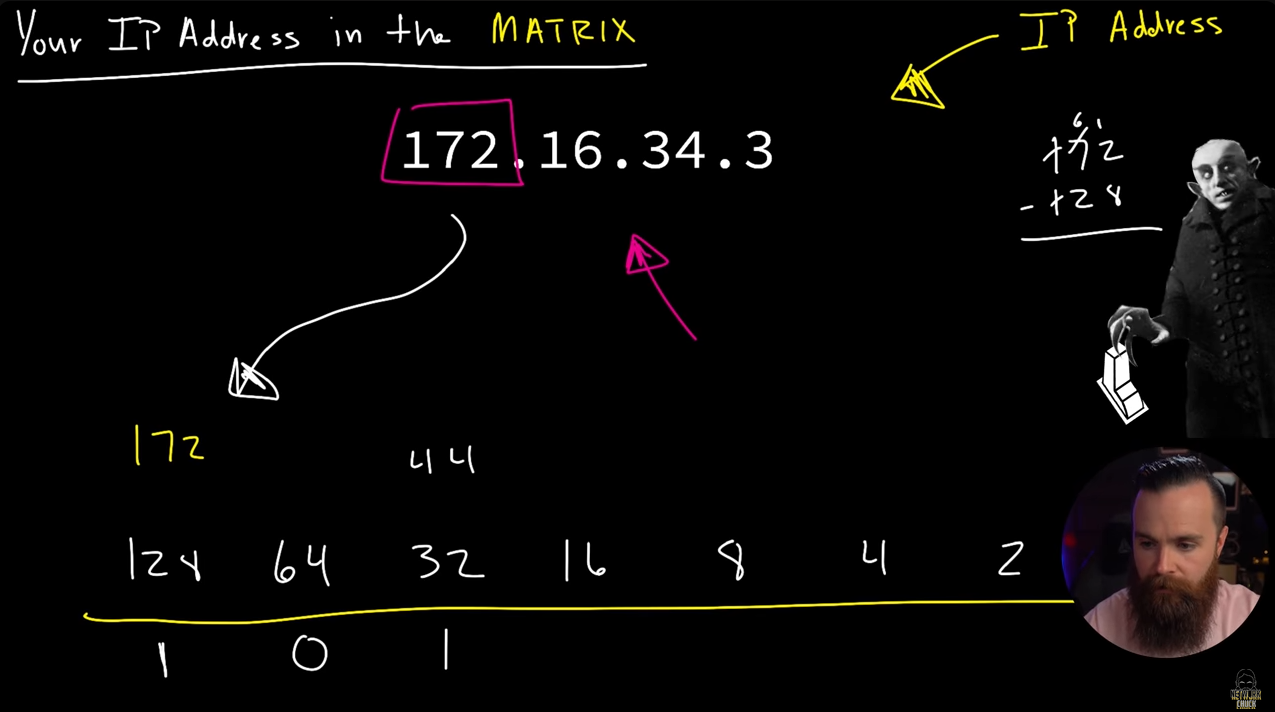 Your IP Address in the MATRIX
IP Address
172.16.34.3
6 1
172
- 128
172
44
128 64 32 16 8 4 2
1 0 1
NETWORK
CHUCK